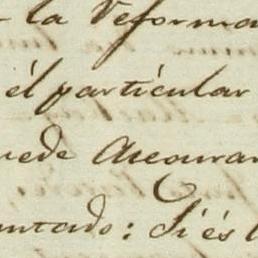 la Reforma
él particular
uede Asegurar
untado: Si és